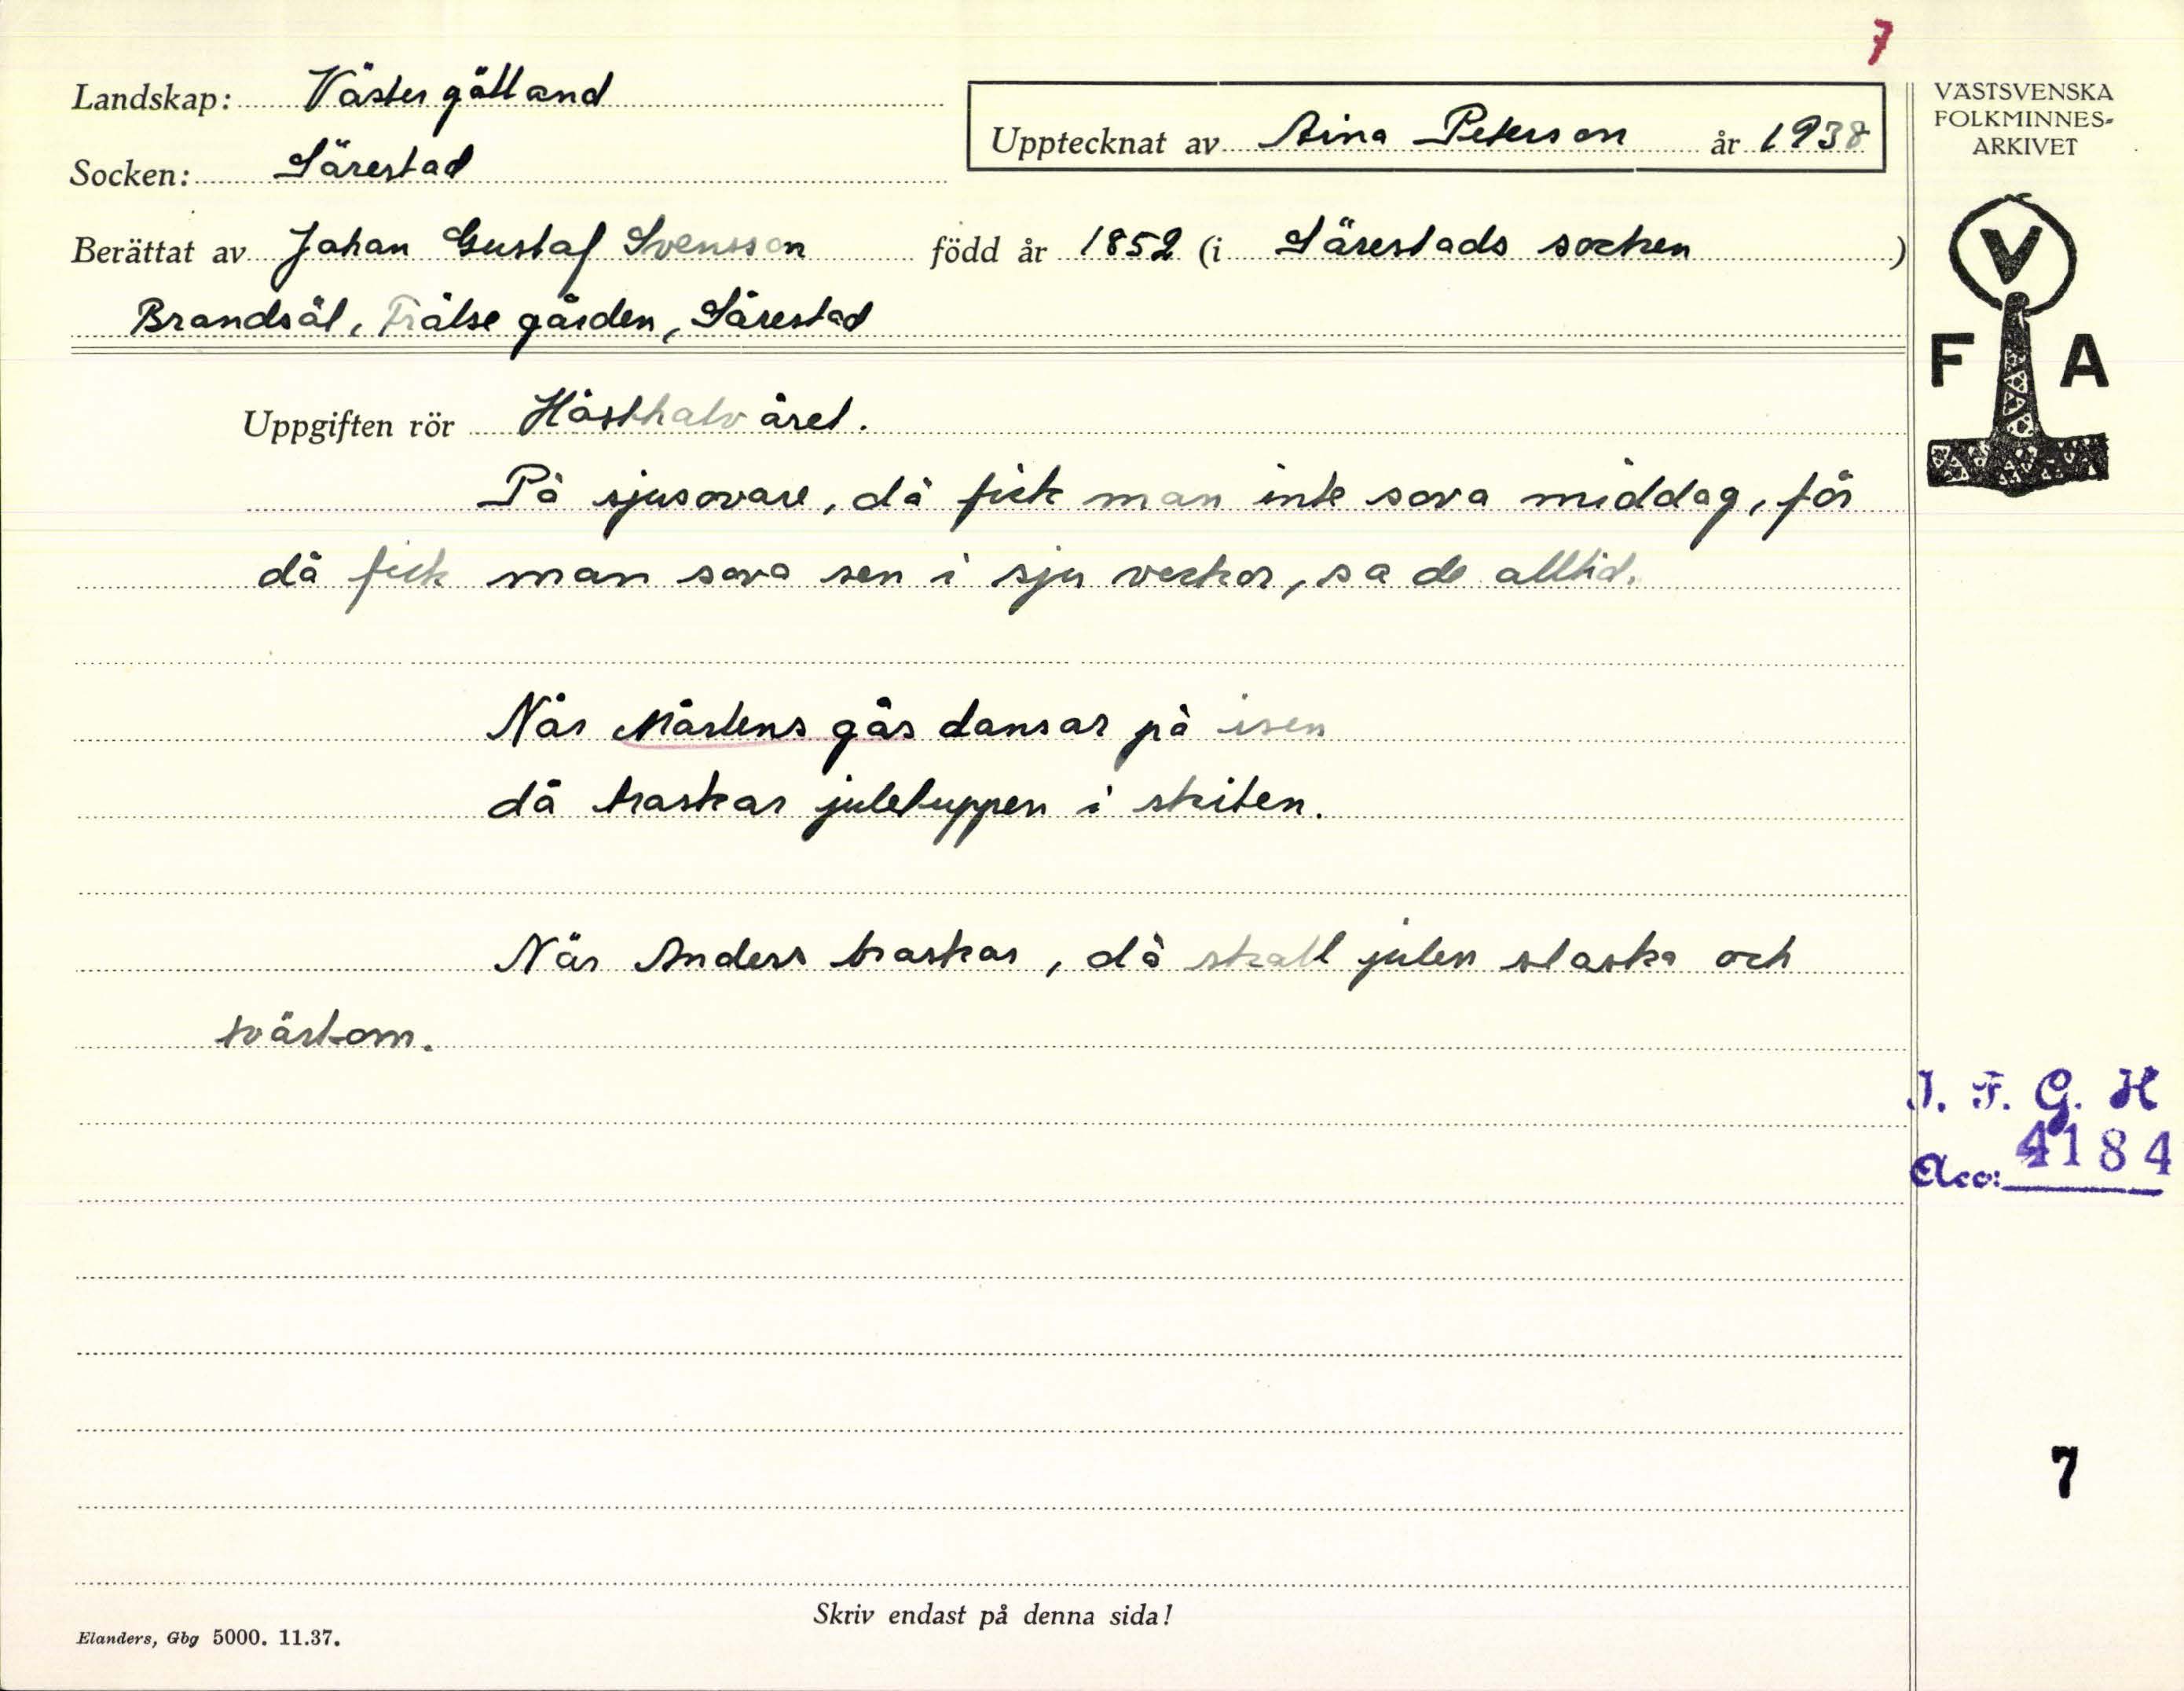 7
Landskap: Västergötland
Socken: Särestad
Upptecknat av Aina Peterson år 1938
VÄSTSVENSKA
FOLKMINNES-
ARKIVET
Berättat av Johan Gustaf Svensson född år 1852 (i Särestads socken )
Brandsål, Frälsegården, Särestad
V
F A
Uppgiften rör Hösthalvåret.
På sjusovare, då fick man inte sova middag, för
då fick man sova sen i sju veckor, sa de alltid.
När Mårtens gås dansar på isen
då traskar juletuppen i skiten.
När Anders braskar, då skall julen slaska och
tvärtom.
I. F. G. H
Acc: 4184
7
Skriv endast på denna sida!
Elanders, Gbg 5000. 11.37.